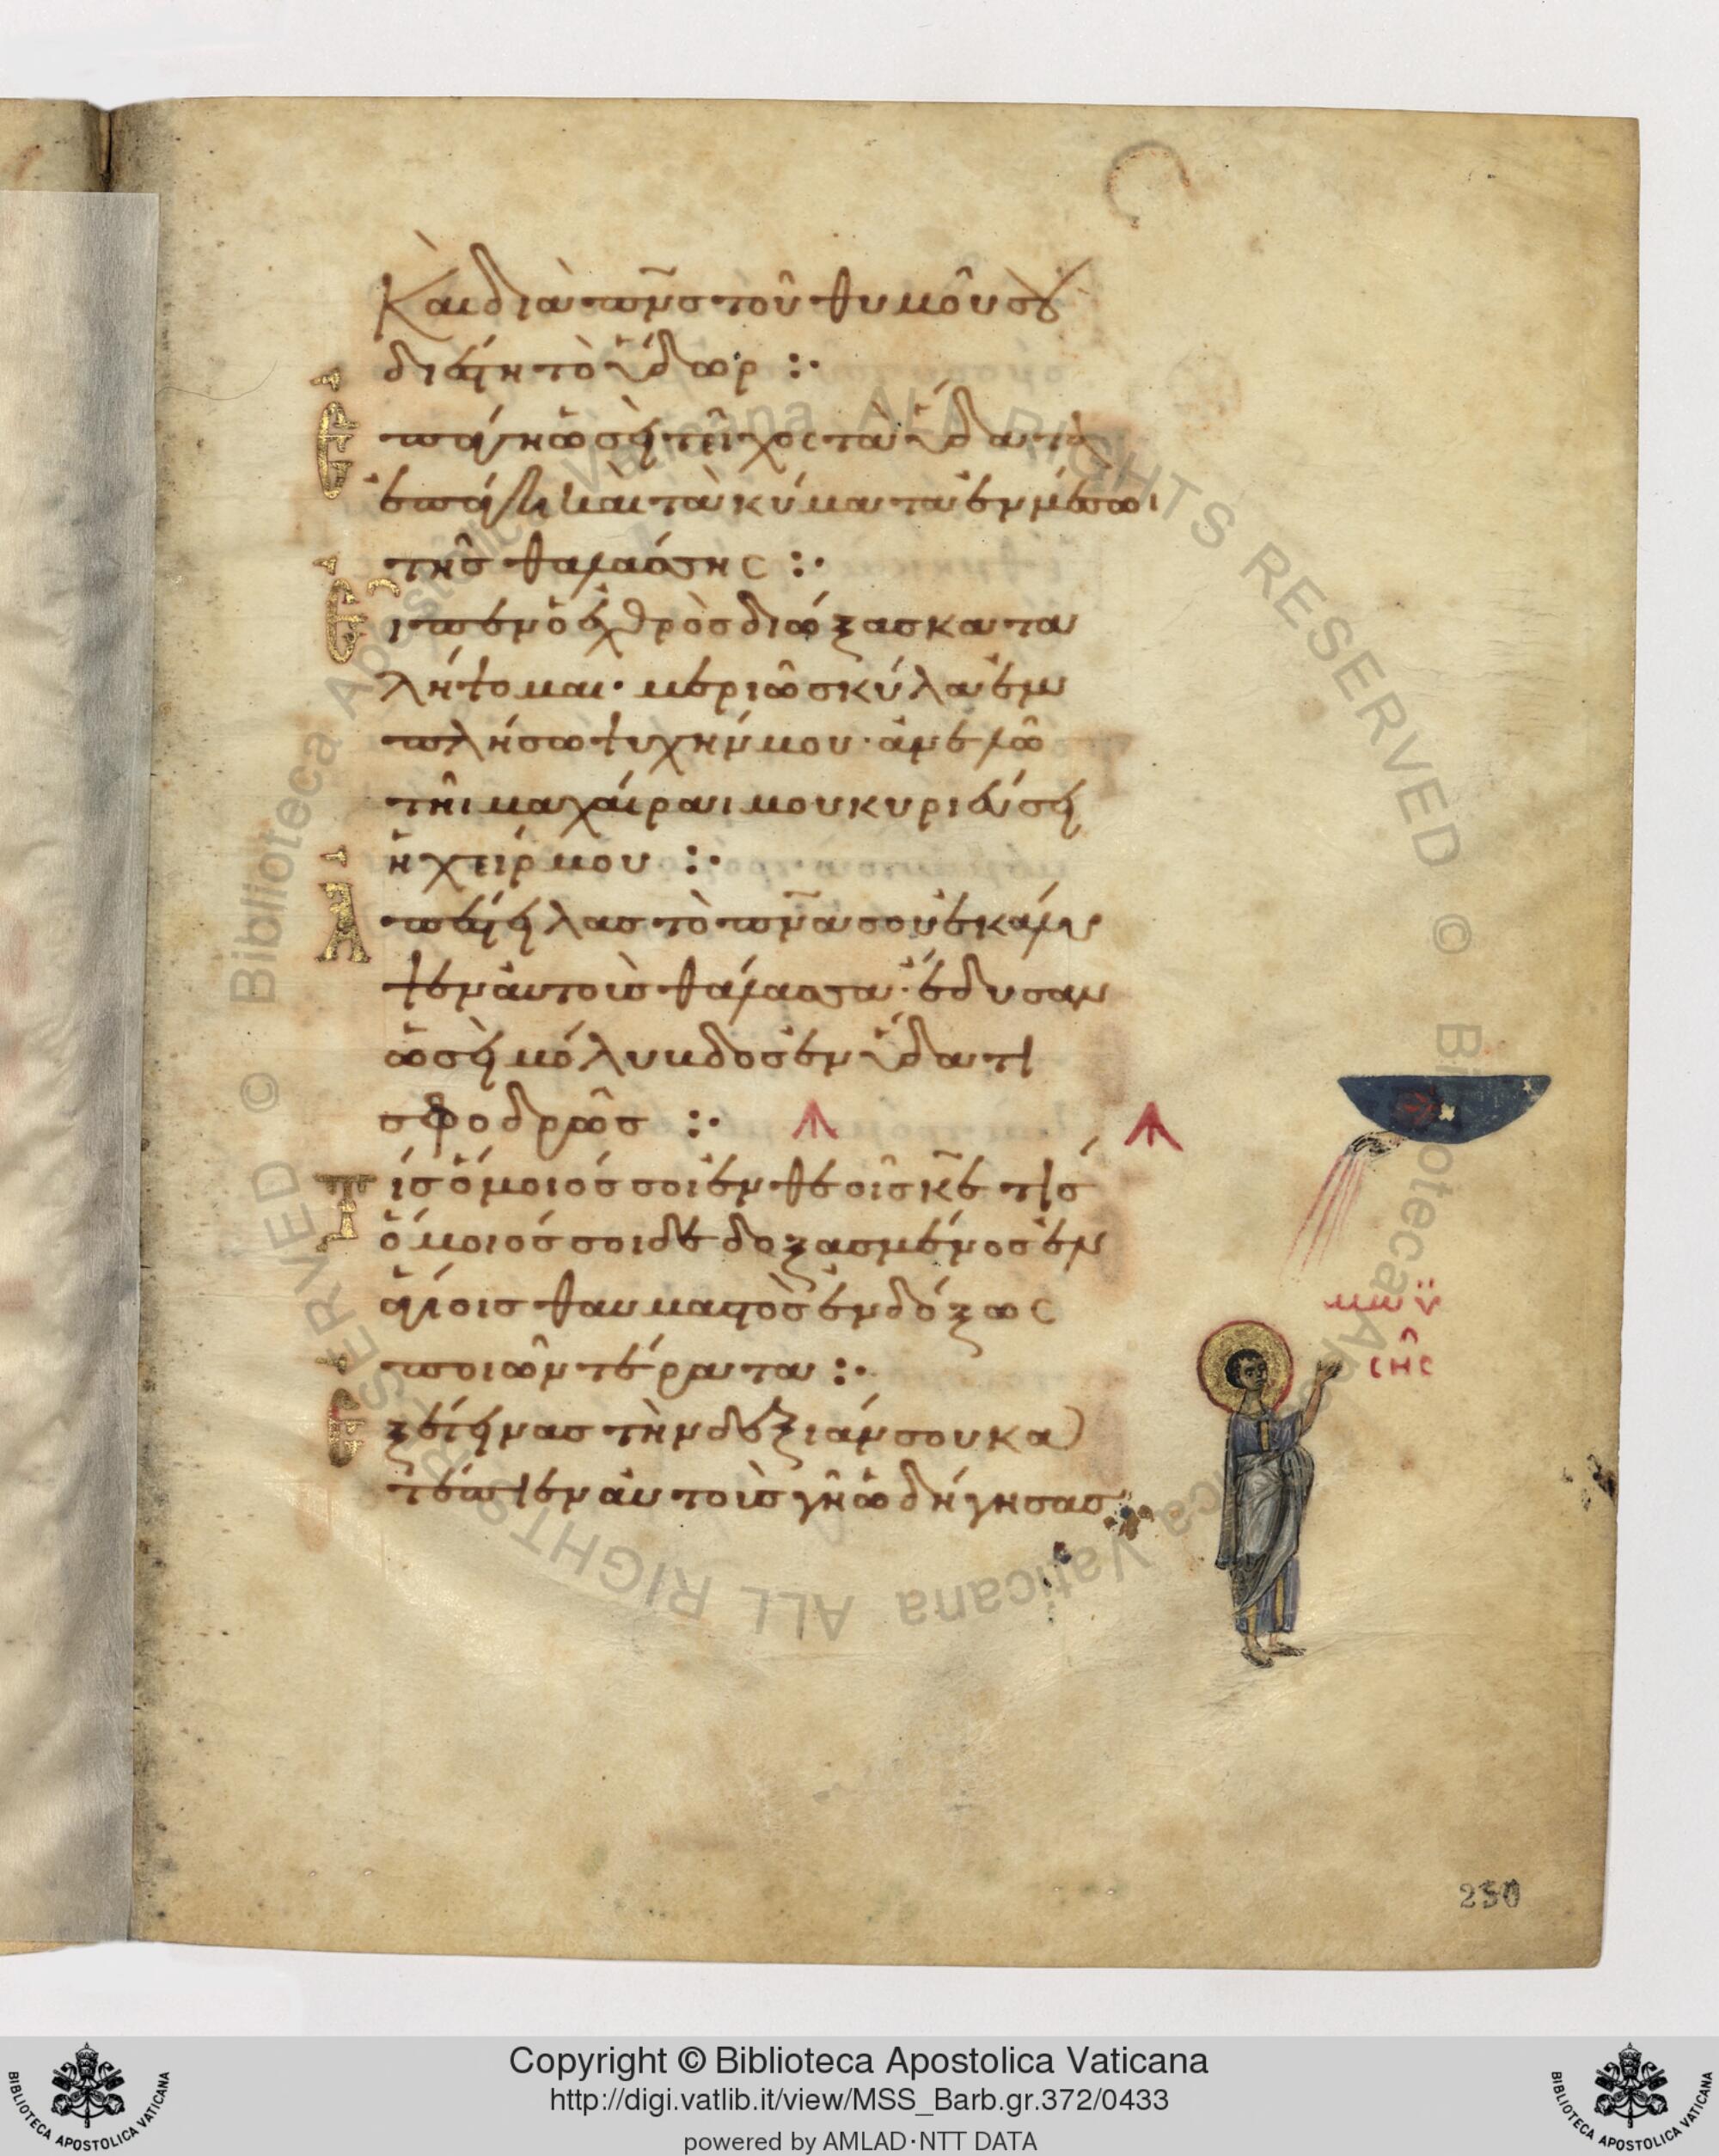 Καὶ διὰ πν̅ς τοῦ θυμοῦ σου
διέστη τὸ ὕδωρ :·
Ἐπάγη ὡσεὶ τεῖχος τὰ ὕδατα
ἐπάγη καὶ τὰ κύματα ἐν μέσωι
τῆς θαλάσσης :·
Εἶπεν ὁ ἐχθρὸς διώξας κατα
λήψομαι· μεριῶ σκύλα ἐμ
πλήσω ψυχήν μου· ἀνελῶ
τῆι μαχαίραι μου κυριεύσει
ἡ χείρ μου :·
Ἀπέστειλας τὸ πν̅α σου ἐκάλυ
ψεν αὐτοὺς θάλασσα· ἔδυσαν
ὡσεὶ μόλυβδος ἐν ὕδατι
σφοδρῶς :·
Τίς ὅμοιός σοι ἐν θεοῖς κ̅ε τίς
ὅμοιός σοι δεδοξασμένος ἐν
ἁγίοις θαυμαστὸς ἐνδόξως
ποιῶν τέρατα :·
Ἐξέτεινας τὴν δεξιάν σου κα
τέπιεν αὐτοὺς γῆ ὡδήγησας
μωϋ
σῆς
230
© Biblioteca Apostolica Vaticana ALL RIGHTS RESERVED © Biblioteca Apostolica Vaticana ALL RIGHTS RESERVED
Copyright © Biblioteca Apostolica Vaticana
http://digi.vatlib.it/view/MSS_Barb.gr.372/0433
powered by AMLAD·NTT DATA
BIBLIOTECA APOSTOLICA VATICANA
BIBLIOTECA APOSTOLICA VATICANA